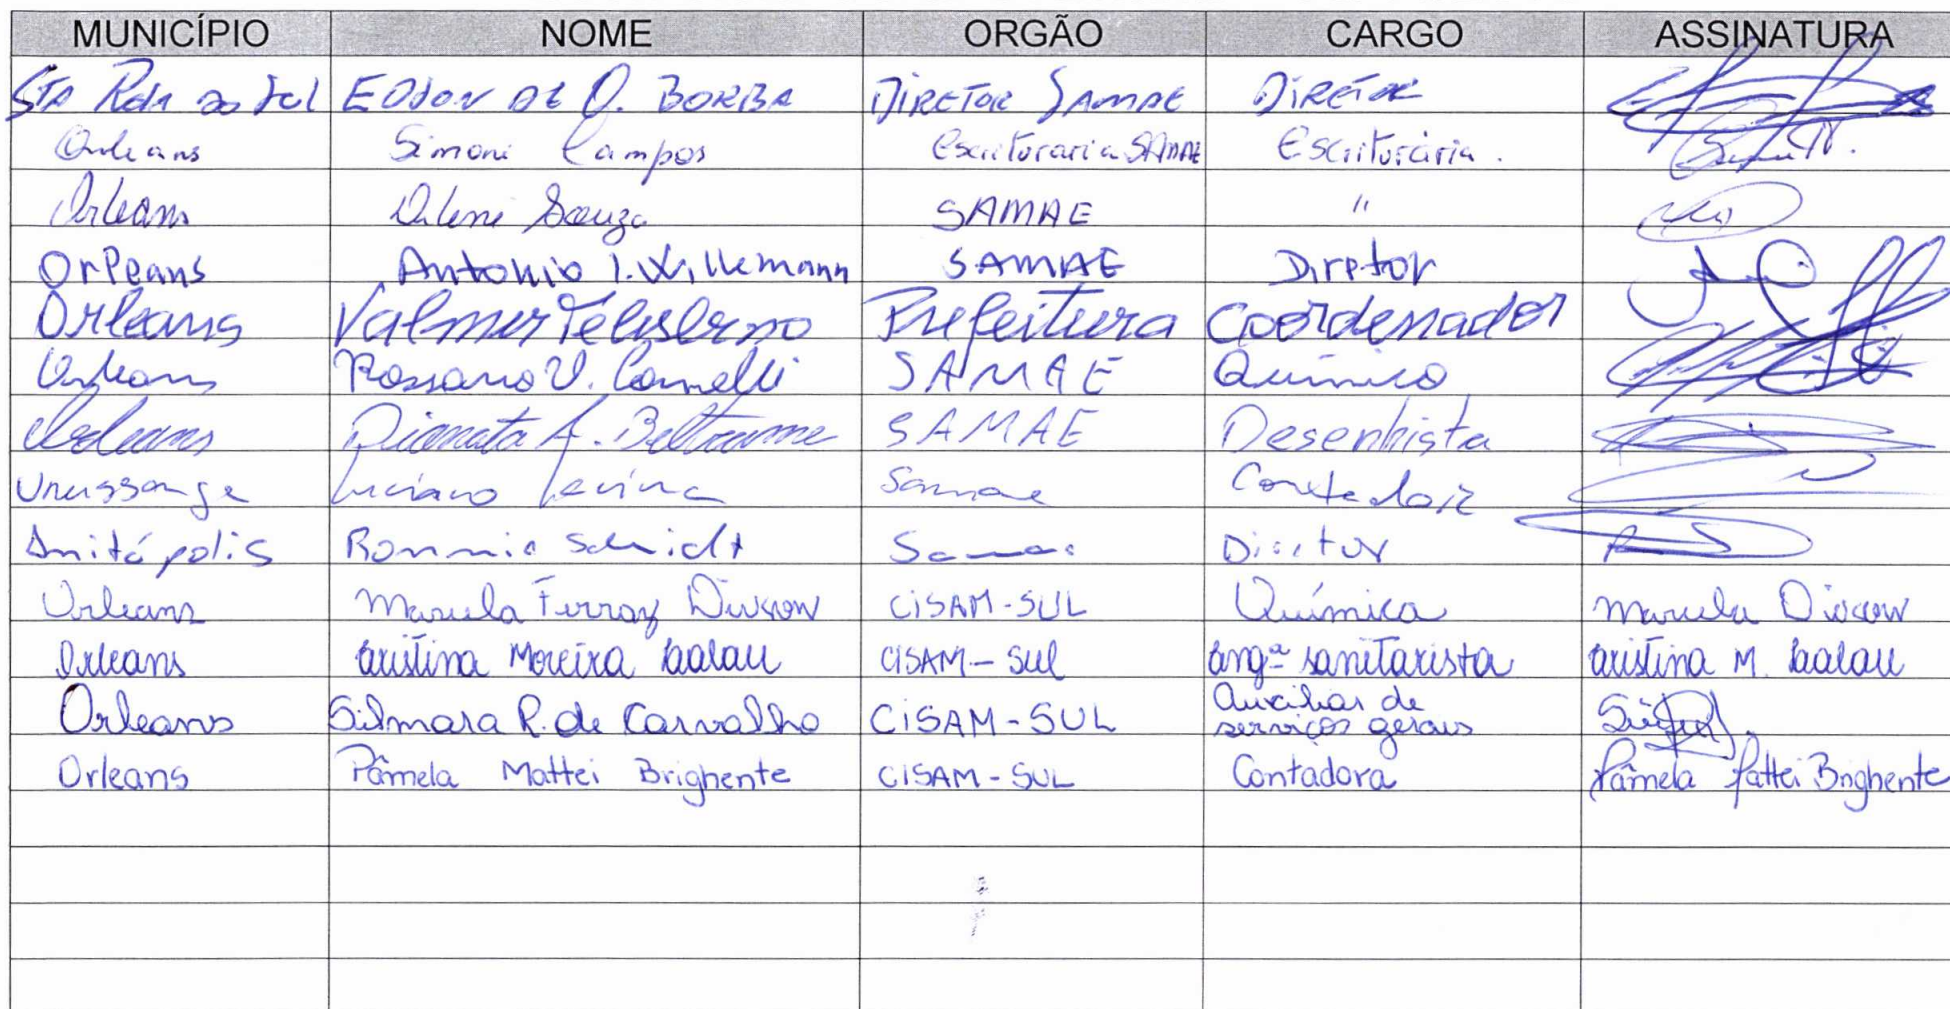 MUNICÍPIO NOME ORGÃO CARGO ASSINATURA
Sta Rosa do Sul EDSON DE O. BORBA DIRETOR SAMAE DIRETOR
Orleans Simoni Campos Escrituraria SAMAE Escriturária.
Orleans Souza SAMAE "
Orleans Antonio I. Willemann SAMAE Diretor
Orleans Valmir Prefeitura Coordenador
Orleans Rossano V. SAMAE Químico
Orleans A. Beltrame SAMAE Desenhista
Urussanga Luciano Samae Contador
Anitápolis Ronnie Schmidt Samae Diretor
Orleans Marcela Ferraz CISAM-SUL Química Marcela
Orleans Cristina Moreira CISAM-Sul Engª sanitarista Cristina M.
Orleans Silmara R. de Carvalho CISAM-SUL Auxiliar de
serviços gerais
Orleans Pâmela Mattei Brighente CISAM-SUL Contadora Pâmela Mattei Brighente